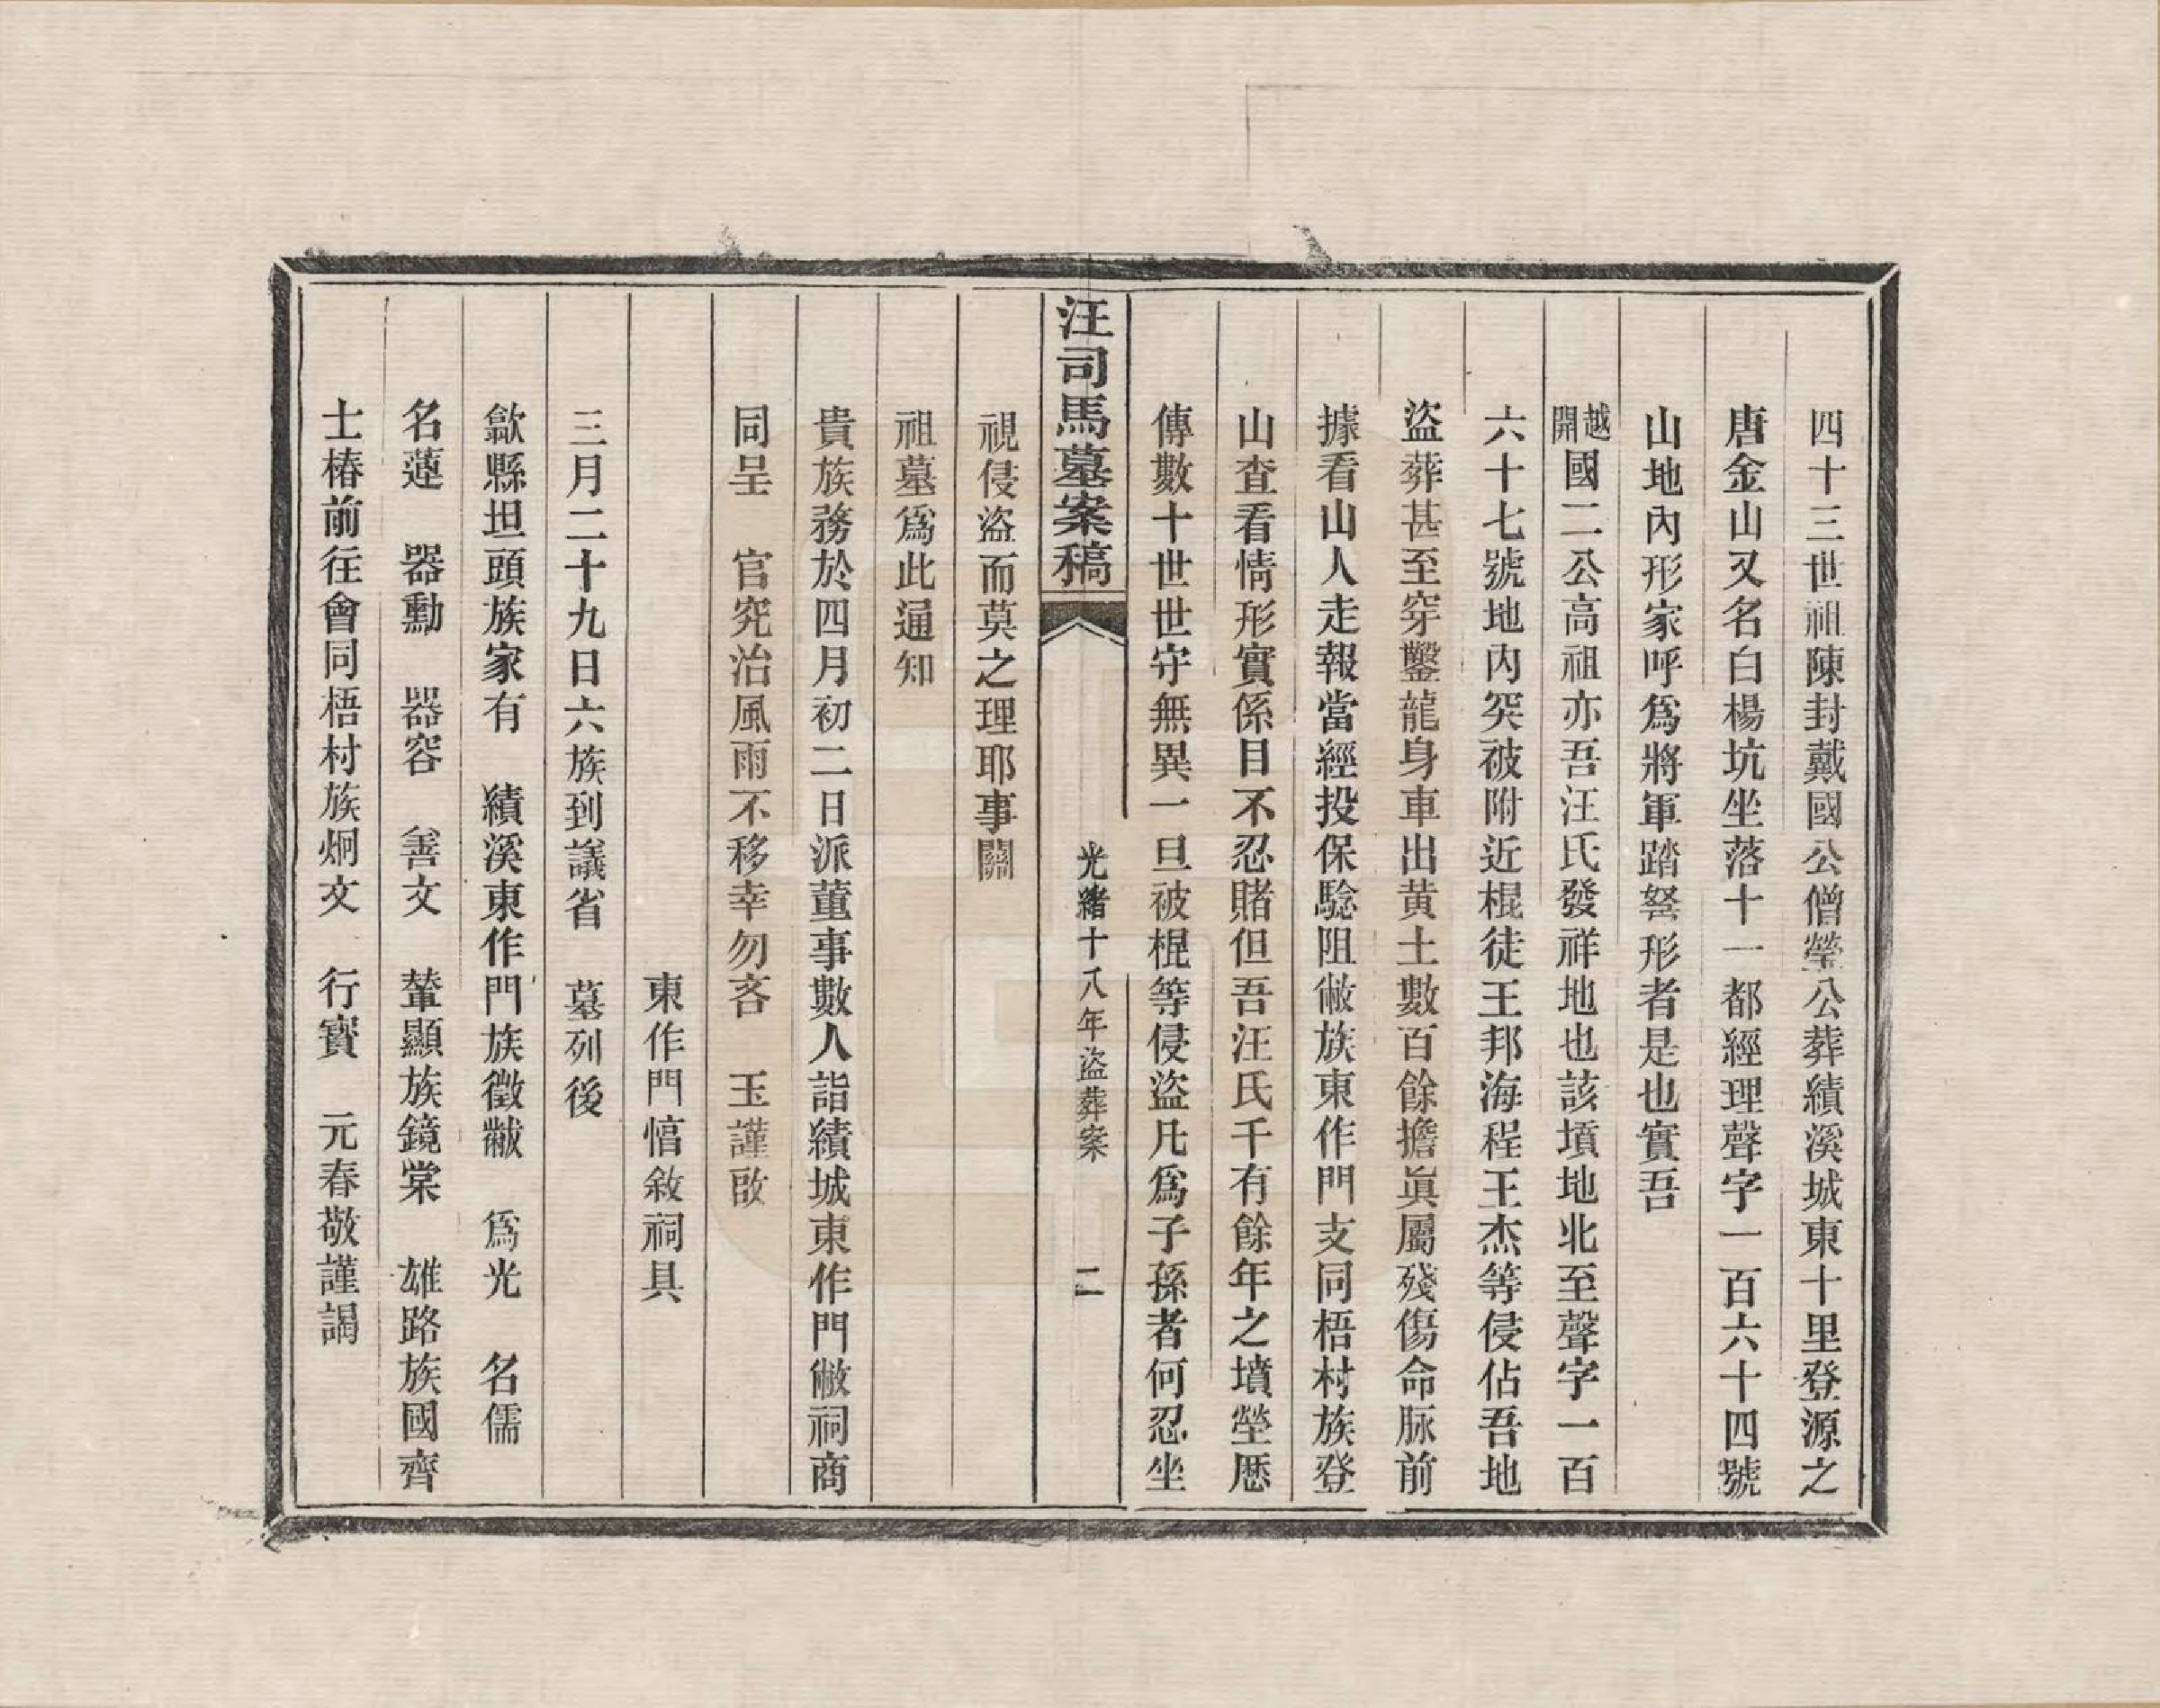 四十三世祖陳封戴國公僧瑩公葬績溪城東十里登源之
唐金山又名白楊坑坐落十一都經理聲字一百六十四號
山地內形家呼爲將軍踏弩形者是也實吾
越開國二公高祖亦吾汪氏發祥地也該墳地北至聲字一百
六十七號地內突被附近棍徒王邦海程王杰等侵佔吾地
盜葬甚至穿鑿龍身車出黃土數百餘擔眞屬殘傷命脉前
據看山人走報當經投保騐阻敝族東作門支同梧村族登
山查看情形實係目不忍賭但吾汪氏千有餘年之墳塋歷
傳數十世世守無異一旦被棍等侵盜凡爲子孫者何忍坐
汪司馬墓案稿
光緒十八年盜葬案
二
視侵盜而莫之理耶事關
祖墓爲此通知
貴族務於四月初二日派董事數人詣績城東作門敝祠商
同呈　官究治風雨不移幸勿吝　玉謹啟
東作門惇敘祠具
三月二十九日六族到議省　墓列後
歙縣坦頭族家有　績溪東作門族徵黻　爲光　名儒
名蓮　器勳　器容　善文　輋顯族鏡棠　雄路族國齊
士椿前往會同梧村族炯文　行寳　元春敬謹謁